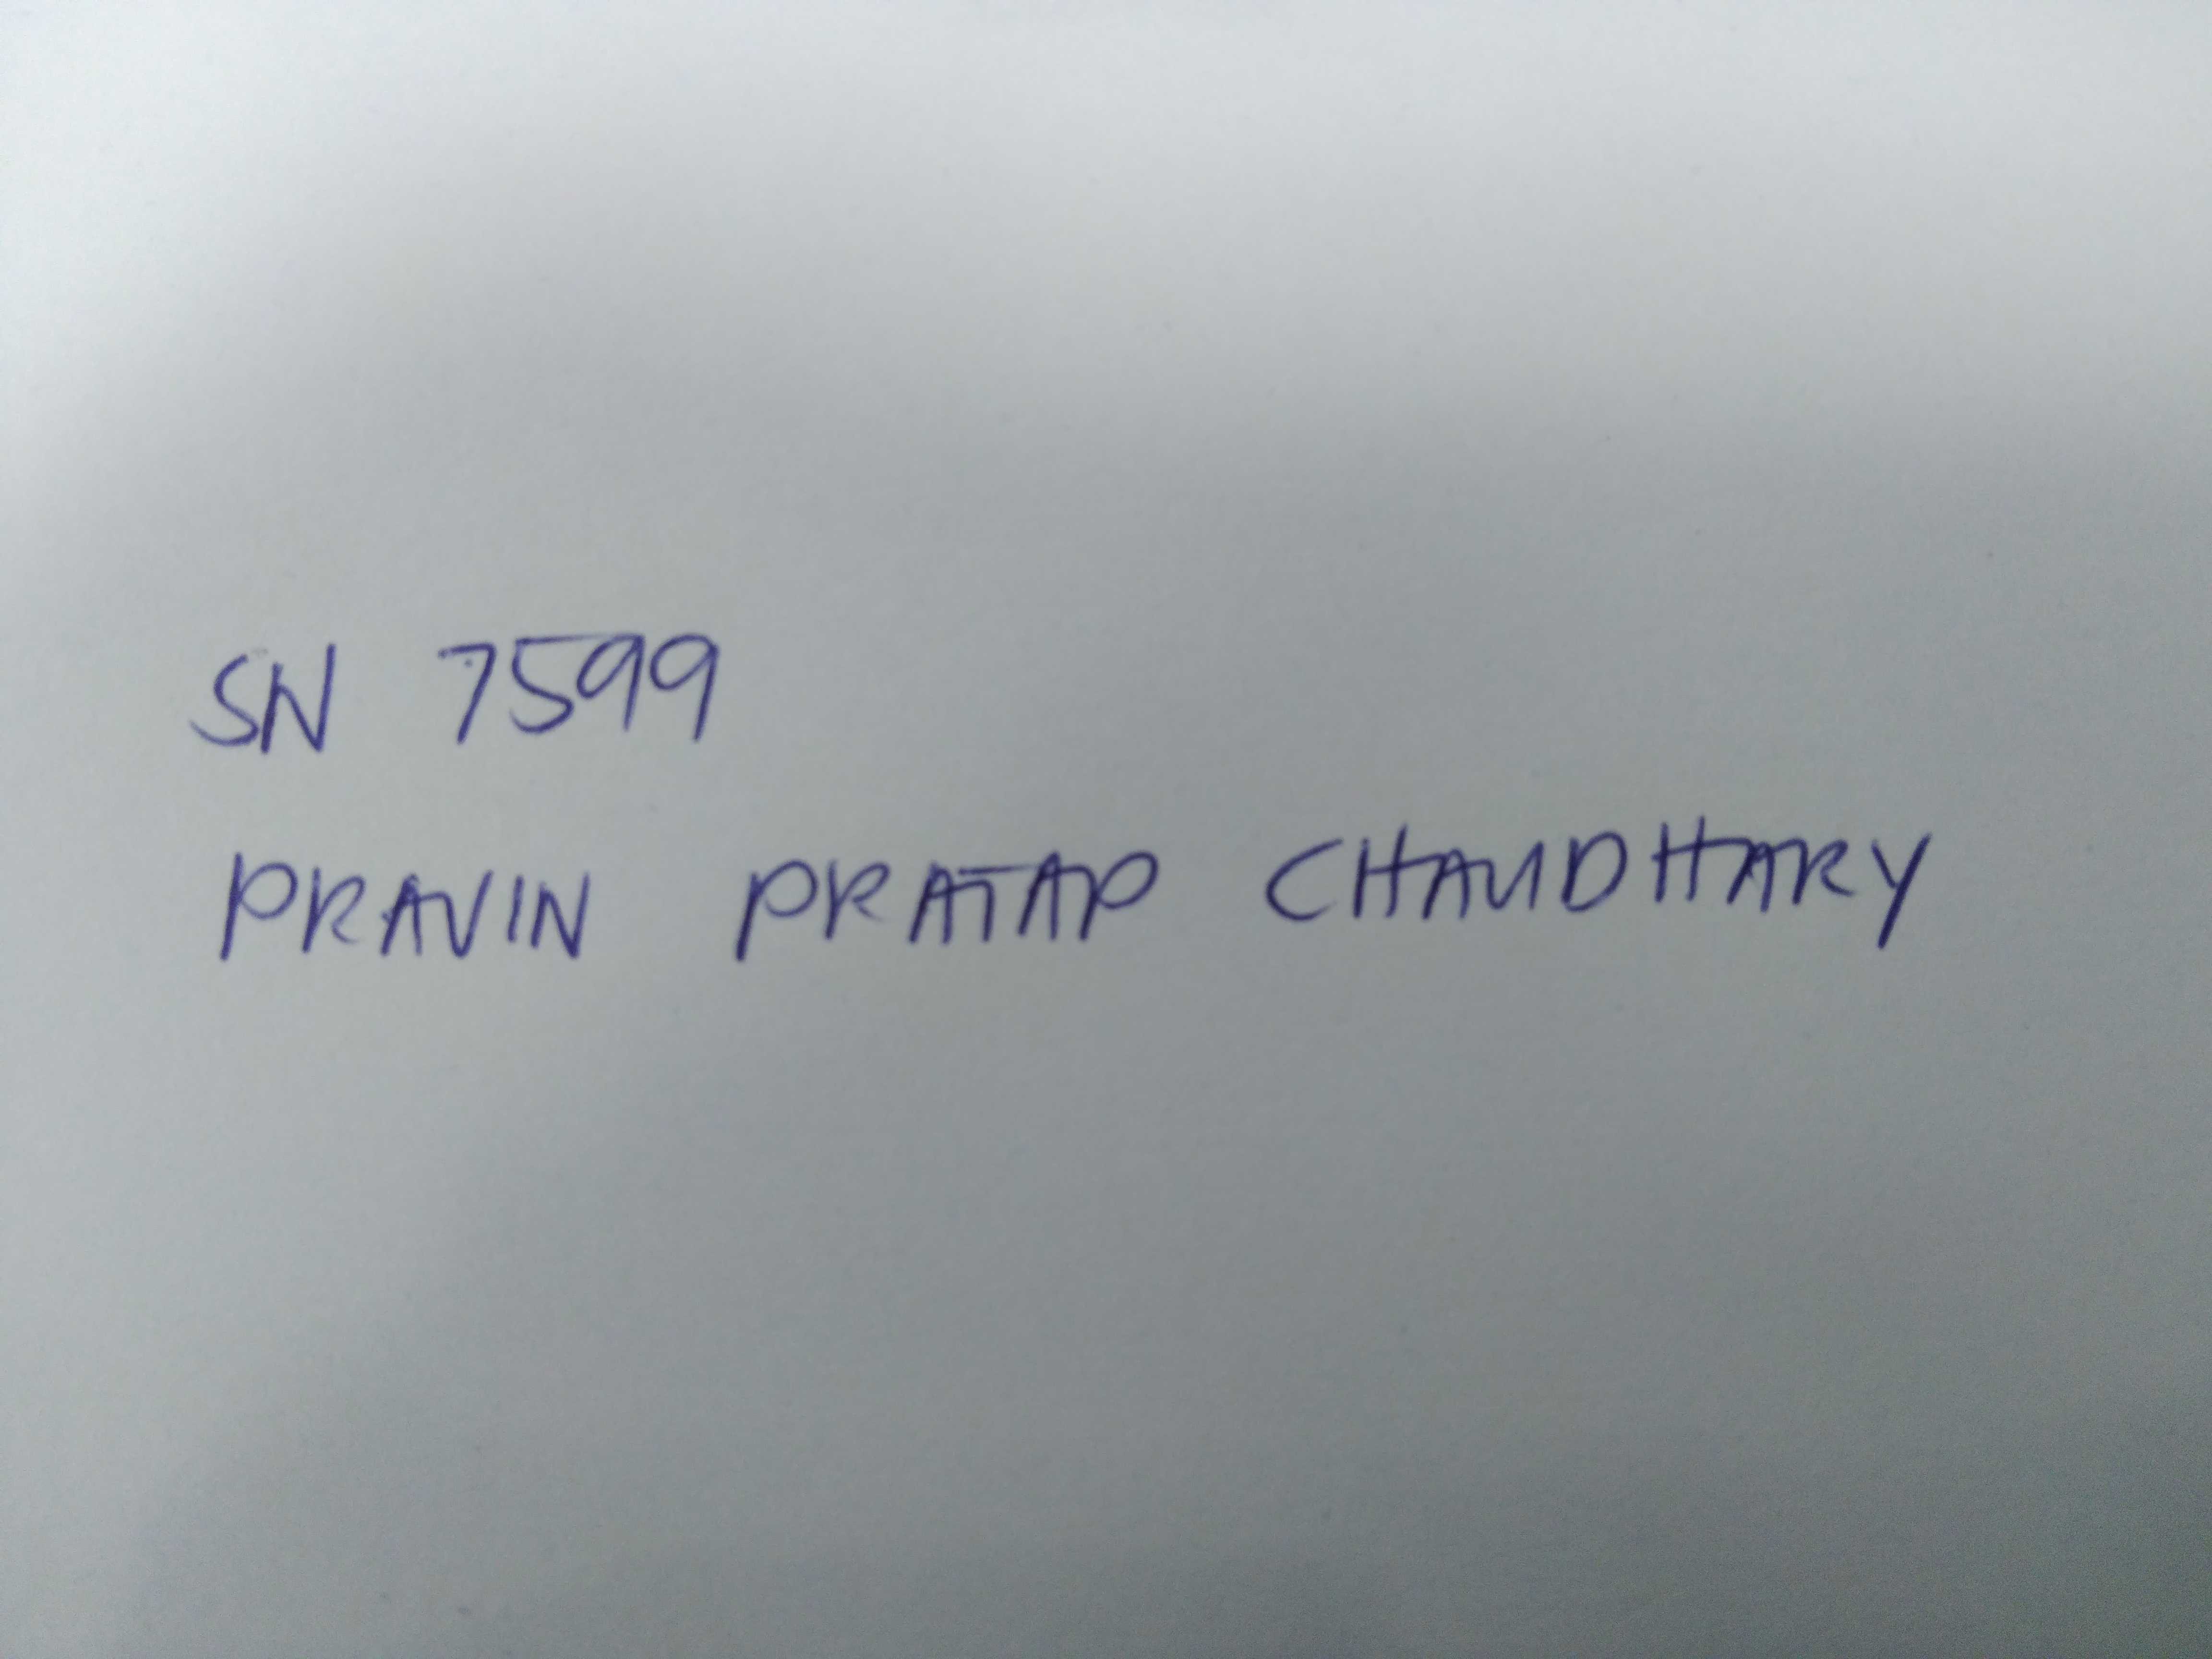 SN 7599
PRAVIN PRATAP CHAUDHARY